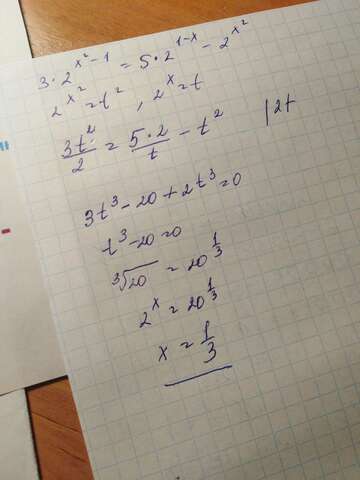 3 · 2^{x^2-1} = 5 · 2^{1-x} - 2^{x^2}
2^{x^2} = t^2 , 2^x = t
\frac{3t^2}{2} = \frac{5·2}{t} - t^2 | 2t
3t^3 - 20 + 2t^3 = 0
t^3 - 20 = 0
\sqrt[3]{20} = 20^{\frac{1}{3}}
2^x = 20^{\frac{1}{3}}
x = \frac{1}{3}